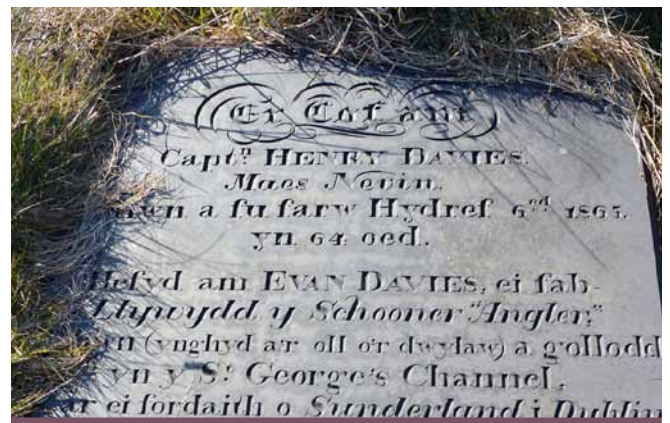 Er Cof am
Captn. HENRY DAVIES.
Maes Nevin.
a fu farw Hydref 6ed 1865.
yn 64 oed.
Hefyd am EVAN DAVIES, ei fab-
Llywydd y Schooner "Angler,"
(ynghyd a'r oll o'r dwylaw) a gollodd
yn y St. George's Channel,
ar ei fordaith o Sunderland i Dublin